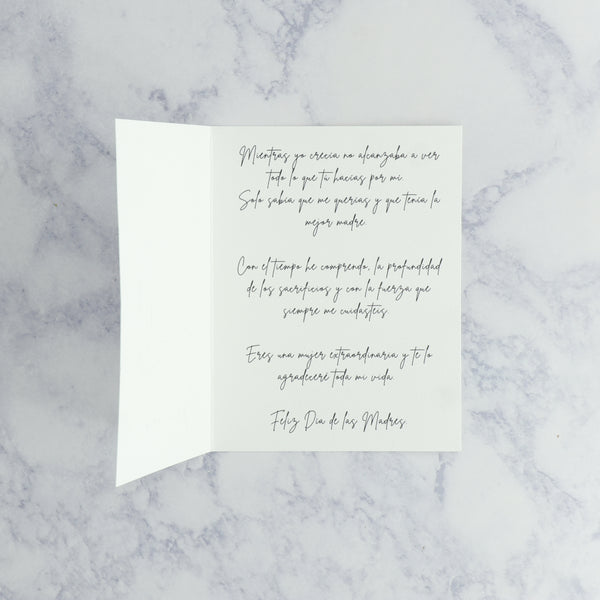 Mientras yo crecia no alcanzaba a ver
todo lo que tú hacias por mi.
Solo sabia que me querias y que tenia la
mejor madre.
Con el tiempo he comprendo, la profundidad
de los sacrificios y con la fuerza que
siempre me cuidasteis.
Eres una mujer extraordinaria y te lo
agradeceré toda mi vida.
Feliz Dia de las Madres.